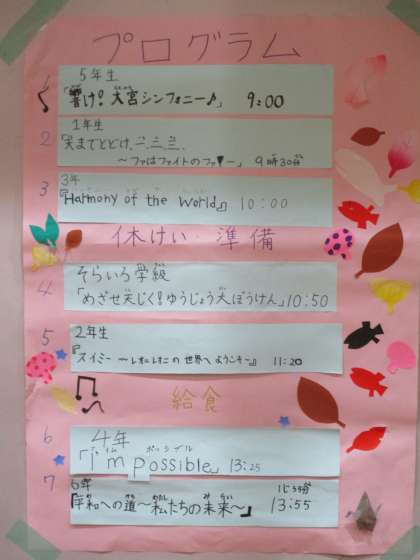 プログラム
1
5年生
「響け！大宮シンフォニー♪」 9:00
2
1年生
「天までとどけ、一、二、三、
～ファはファイトのファ～」 9時30分
3
3年
『Harmony of the World』 10:00
休けい 準備
4
そらいろ学級
「めざせ天じく！ゆうじょう大ぼうけん」 10:50
5
2年生
『スイミー ～レオ=レオニの世界へようこそ～』 11:20
給食
6
4年
「i'm possible」 13:25
アイム ポッシブル
7
6年
『平和への道～私たちの未来～』 13:55